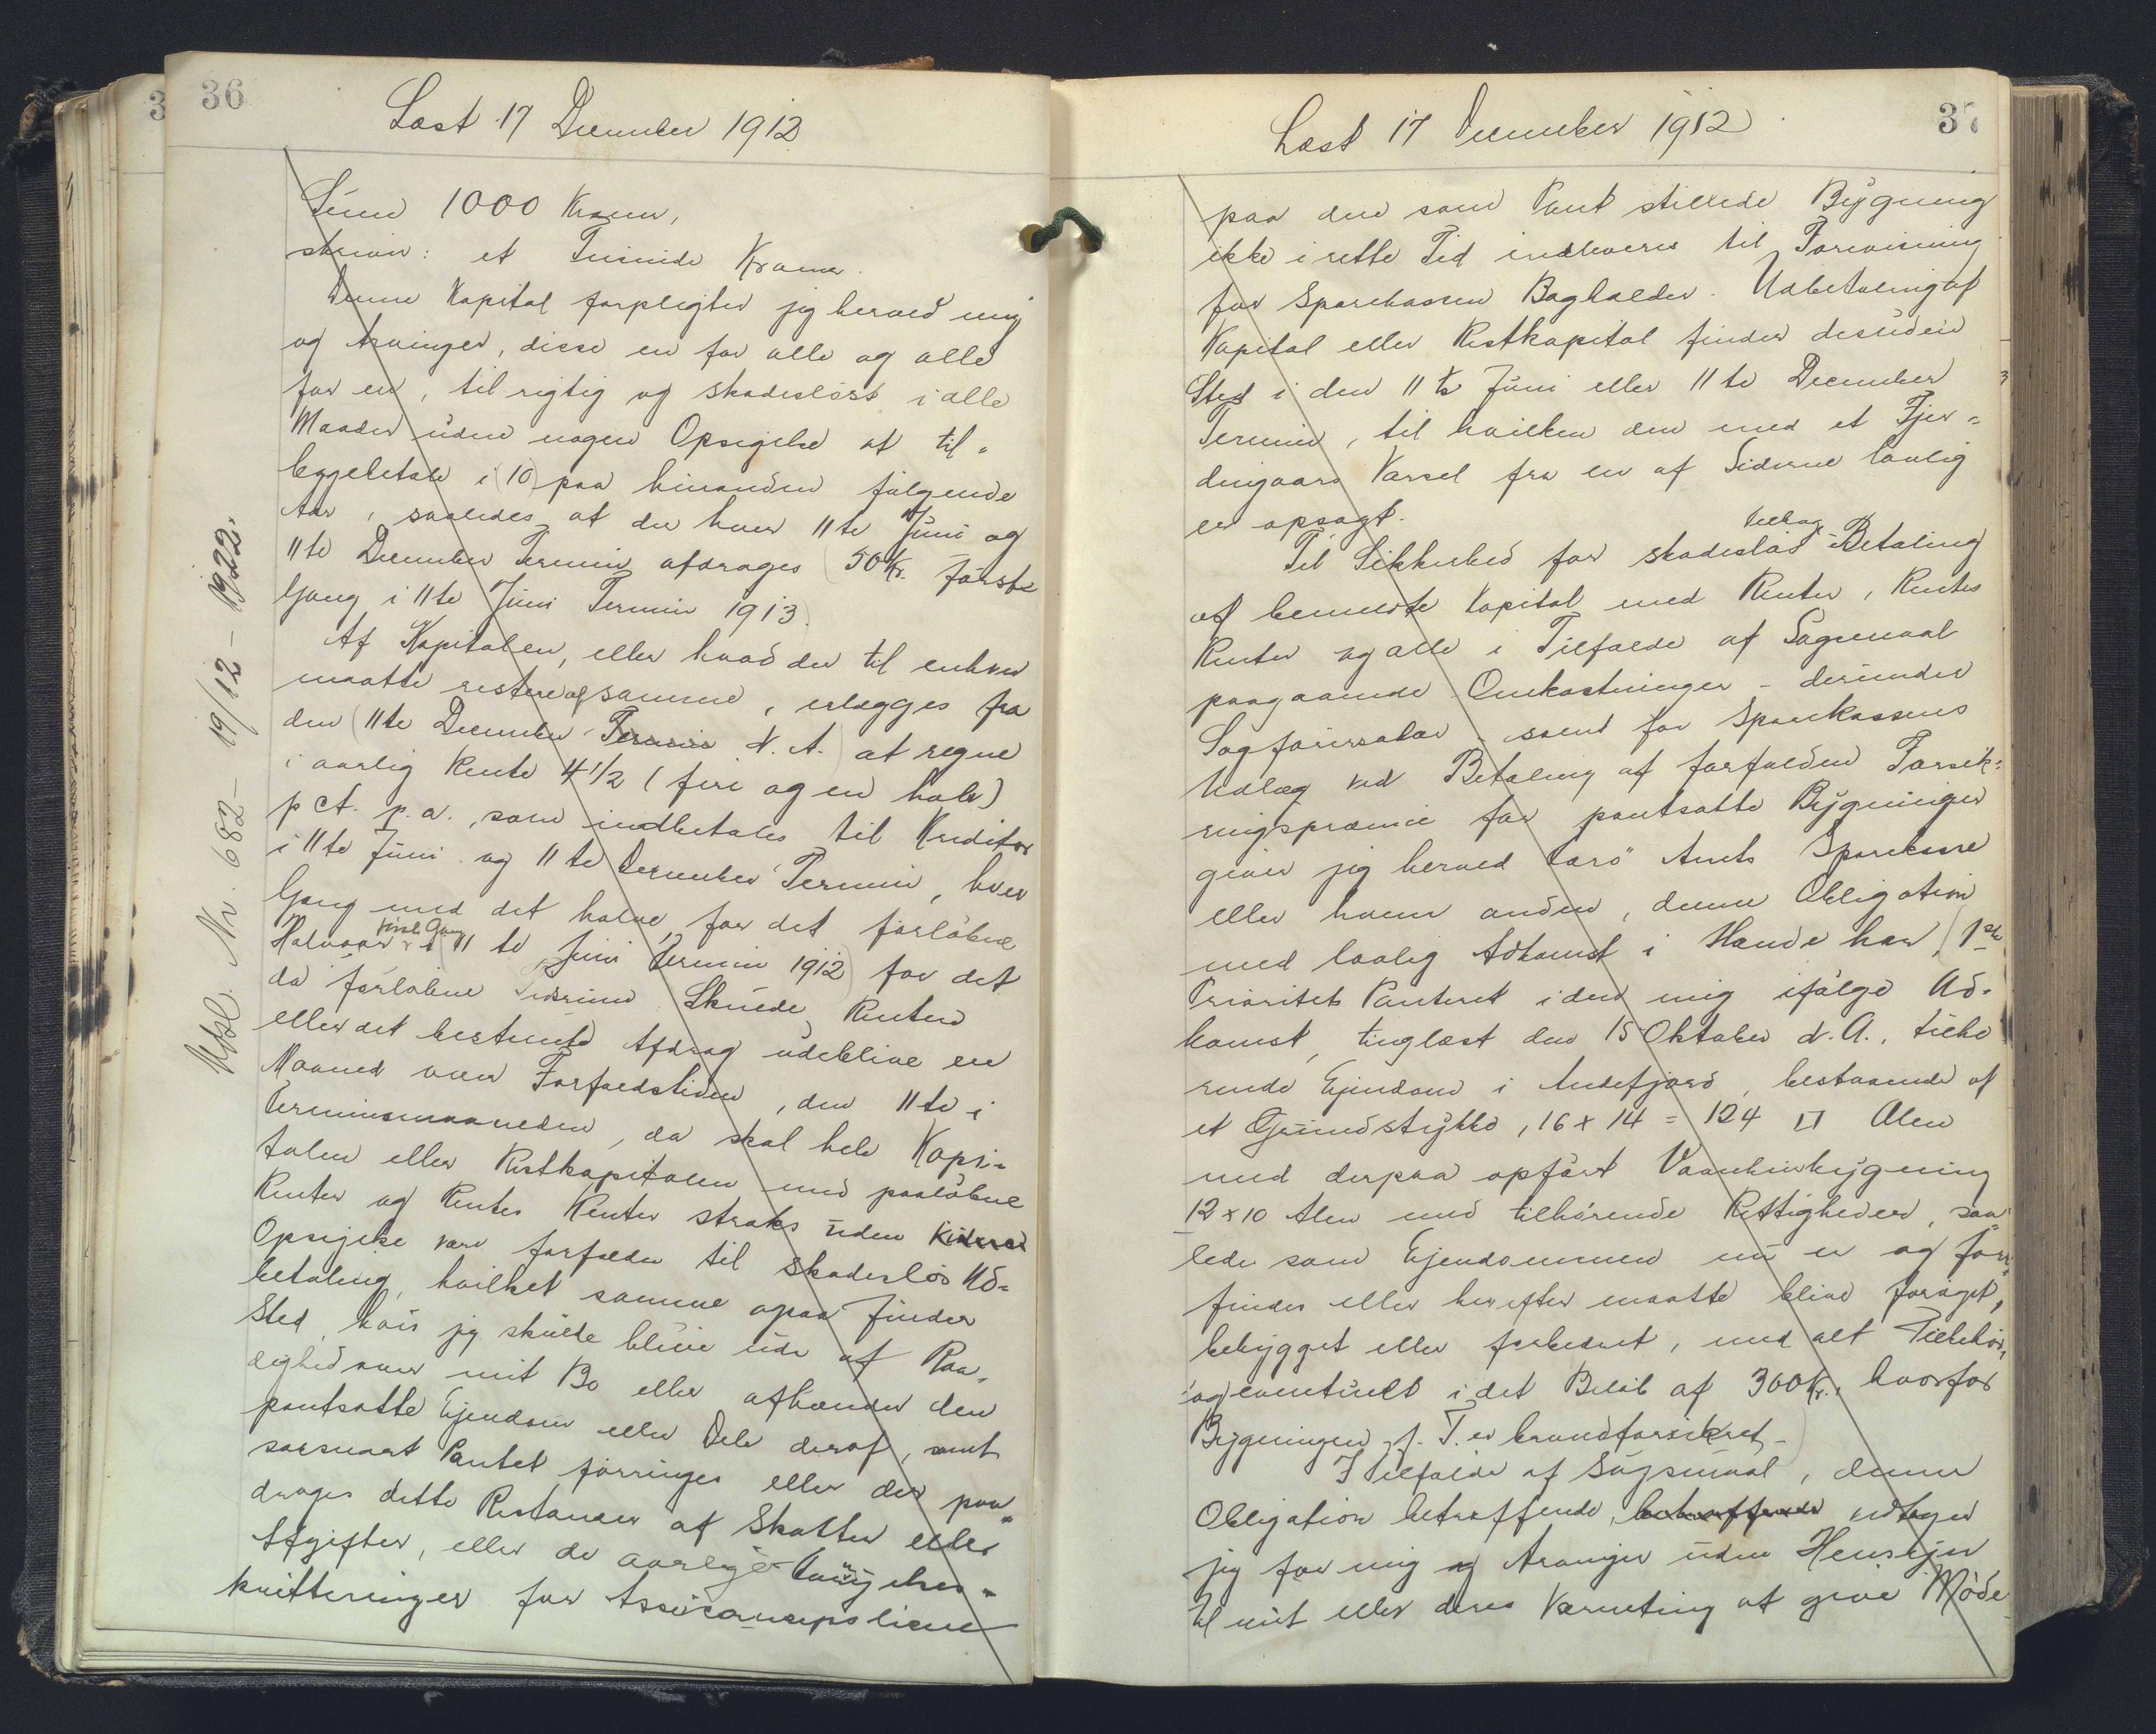 36
Læst 17 December 1912
Udsl. Nr. 682 - 19/12 - 1922.
Sum 1000 Kroner,
skriver: et Tusinde Kroner.
Denne Kapital forpligter jeg herved mig
og Arvinger, disse en for alle og alle
for en, til rigtig og skadesløst i alle
Maader uden nogen Opsigelse at til=
bagebetale i (10) paa hinanden følgende
Aar, saaledes at der hver 11te Juni og
11te December Termin afdrages (50 Kr. første
Gang i 11te Juni Termin 1913)
Af Kapitalen, eller hvad der til enhver
maatte restere af samme, erlægges fra
den (11te December Termin d. A.) at regne
i aarlig Rente 4 1/2 (fire og en halv)
p Ct. p. a., som indbetales til Kreditor
i 11te Juni og 11te December Termin, hver
Gang med det halve for det forløbne
Halvaar første Gang i (11te Juni Termin 1912) for det
da forløbne Tidsrum. Skulde Renten
eller det bestemte Afdrag udeblive en
Maaned over Forfaldstiden, den 11te i
Terminsmaaneden, da skal hele Kapi=
talen eller Restkapitalen med paaløbne
Renter og Renters Renter straks uden videre
Opsigelse være forfalden til skadesløs Ud=
betaling, hvilket samme ogsaa finder
Sted, hvis jeg skulde blive ude af Raa=
dighed over mit Bo eller afhænder den
pantsatte Ejendom eller Dele deraf, samt
saasnart Pantet forringes eller der paa=
drages dette Restancer af Skatter eller
Afgifter, eller de aarlige
kvitteringer for Assurancepolicen
37
Læst 17 December 1912
paa den som Pant stillede Bygning
ikke i rette Tid indleveres til Forevisning
for Sparekassen Bogholder. Udbetaling af
Kapital eller Restkapital finder desuden
Sted i den 11te Juni eller 11te December
Termin, til hvilken den med et Fjer=
dingaars Varsel fra en af Siderne lovlig
er opsagt.
Til Sikkerhed for skadesløs tilbage-Betaling
af bemeldte Kapital med Renter, Renters
Renter og alle i Tilfælde af Søgsmaal
paagaaende Omkostninger - derunder
Sagførersalær - samt for Sparekassens
Udlæg ved Betaling af forfalden Forsik=
ringspræmie for pantsatte Bygninger
giver jeg herved Varö Amts Sparekasse
eller hvem anden, denne Obligation
med lovlig Adkomst i Hænde har, (1ste
Prioritets Panteret i den mig ifølge Ad=
komst, tinglæst den 15 Oktober d. A., tilhø
rende Ejendom i Andefjord, bestaaende af
et Grundstykke, 16 x 14 = 124 □ Alen
med derpaa opført Vaaningsbygning
12 x 10 Alen med tilhørende Rettigheder, saa
ledes som Ejendommen nu er og fore=
findes eller herefter maatte blive forøget,
bebygget eller forbedret, med alt Tilbehør,
og eventuelt i det Beløb af 300 Kr., hvorfor
Bygningen p. T. er brandforsikret.)
I Tilfælde af Søgsmaal, denne
Obligation betræffende, betræffende vedtager
jeg for mig og Arvinger uden Hensyn
til mit eller deres Værneting at give Møde